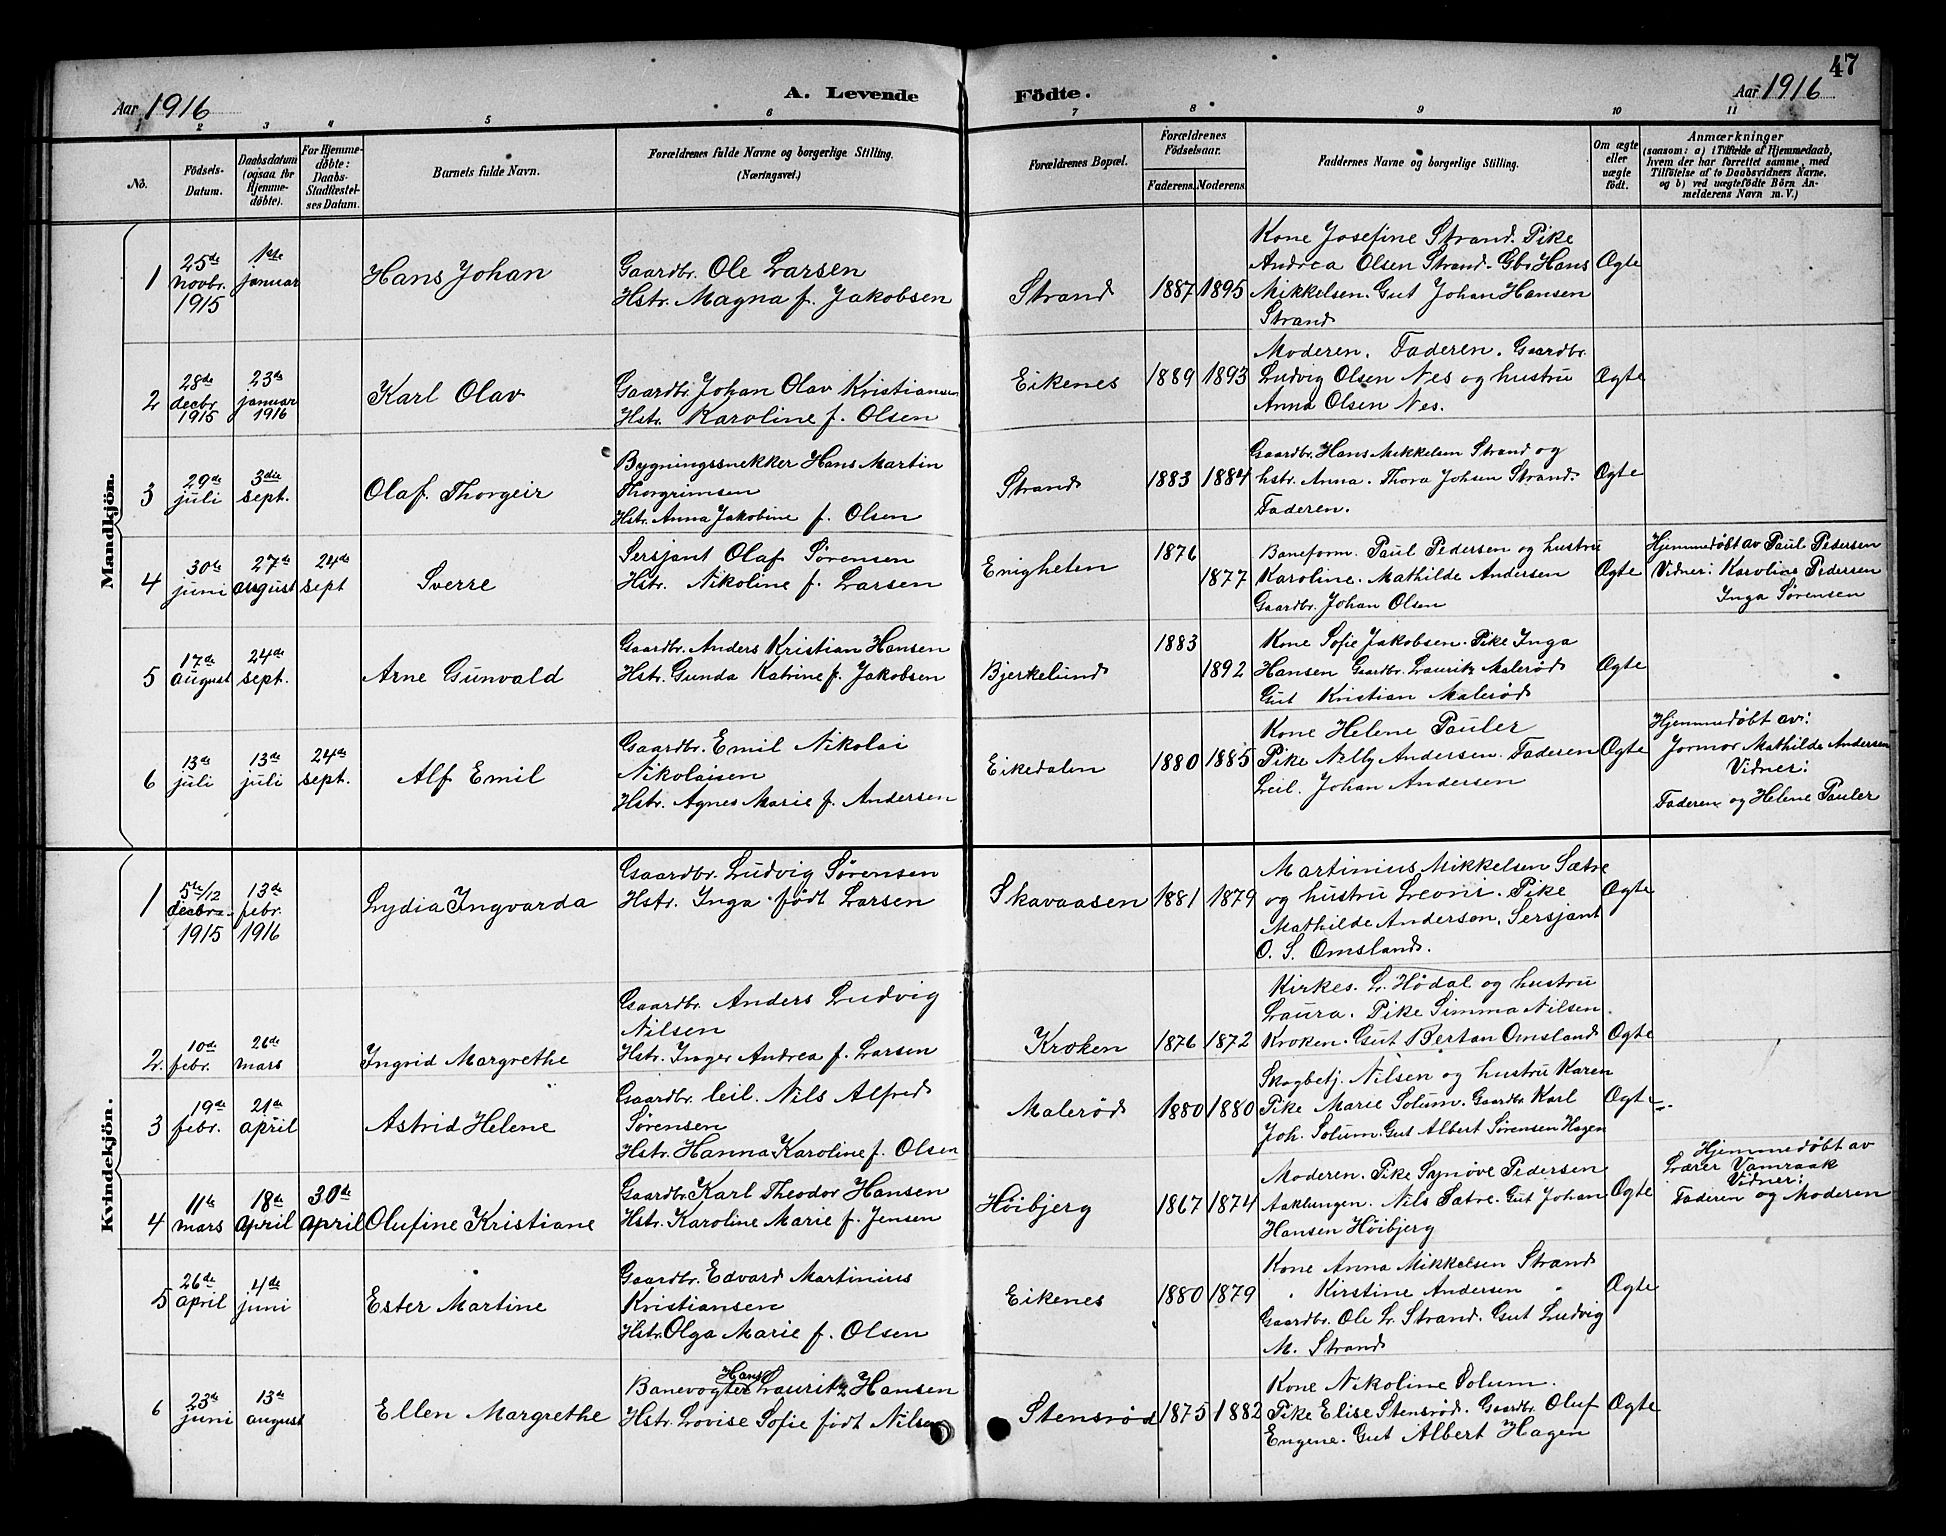 47
Aar 1916
A. Levende Födte.
Aar 1916
1 2 3 4 5 6 7 8 9 10 11
No.
Födsels-Datum.
Daabsdatum (ogsaa for Hjemme-döbte).
For Hjemme-döbte: Daabs-Stadfæstel-ses Datum.
Barnets fulde Navn.
Forældrenes fulde Navne og borgerlige Stilling. (Næringsvei.)
Forældrenes Bopæl.
Forældrenes Födselsaar.
Faderens. Moderens.
Faddernes Navne og borgerlige Stilling.
Om ægte eller uægte födt.
Anmærkninger (saasom: a) i Tilfælde af Hjemmedaab, hvem der har forrettet samme, med Tilföielse af to Daabsvidners Navne, og b) ved uægtefödte Börn An-melderens Navn m. V.)
Mandkjön.
1
25de novbr. 1915
1ste januar
Hans Johan
Gaardbr. Ole Larsen
Hstr. Magna f. Jakobsen
Strand
1887 1895
Kone Josefine Strand. Pike
Andrea Olsen Strand. Gbr Hans
Mikkelsen. Gut Johan Hansen
Strand
Ægte
2
28de decbr. 1915
23de januar 1916
Karl Olav
Gaardbr. Johan Olav Kristiansen
Hstr. Karoline f. Olsen
Eikenes
1889 1893
Moderen. Faderen. Gaardbr.
Ludvig Olsen Nes og hustru
Anna Olsen Nes.
Ægte
3
29de juli
3die sept.
Olaf Thorgeir
Bygningssnekker Hans Martin
Thorgrimsen
Hstr. Anna Jakobine f. Olsen
Strand
1883 1884
Gaardbr. Hans Mikkelsen Strand og
hstr. Anna. Thora Johsen Strand.
Faderen.
Ægte
4
30te juni
27de august
24de sept
Sverre
Sersjant Olaf Sørensen
Hstr. Nikoline f. Larsen
Enigheten
1876 1877
Baneform. Paul Pedersen og hustru
Karoline. Mathilde Andersen
Gaardbr. Johan Olsen
Ægte
Hjemmedøbt av Paul Pedersen
Vidner: Karoline Pedersen
Inga Sørensen
5
17de august
24de sept.
Arne Gunvald
Gaardbr. Anders Kristian Hansen
Hstr. Gunda Katrine f. Jakobsen
Bjerkelund
1883 1892
Kone Sofie Jakobsen. Pike Inga
Hansen Gaardbr. Lauritz Malerød
Gut Kristian Malerød
Ægte
6
13de juli
13de juli
24de sept.
Alf Emil
Gaardbr. Emil Nikolai
Nikolaisen
Hstr. Agnes Marie f. Andersen
Eikedalen
1880 1885
Kone Helene Pauler
Pike Nelly Andersen. Faderen
Leil. Johan Andersen
Ægte
Hjemmedøbt av:
Jormor Mathilde Andersen
Vidner:
Faderen og Helene Pauler
Kvindekjön.
1
5te/12 decbr. 1915
13de febr. 1916
Lydia Ingvarda
Gaardbr. Ludvig Sørensen
Hstr. Inga født Larsen
Skavaasen
1881 1879
Martinius Mikkelsen Sætre
og hustru Leoni. Pike
Mathilde Anderson. Sersjant
O. S. Omsland.
Ægte
2.
10de febr.
26de mars
Ingrid Margrethe
Gaardbr. Anders Ludvig
Nilsen
Hstr. Inger Andrea f. Larsen
Kroken
1876 1872
Kirkes. L. Hødal og hustru
Laura. Pike Simma Nilsen.
Kroken. Gut Bertan Omsland
Ægte
3
19de febr.
21de april
Astrid Helene
Gaardbr. leil. Nils Alfred
Sørensen
Hstr. Hanna Karoline f. Olsen
Malerød
1880 1880
Skogbetj. Nilsen og hustru Karen
Pike Marie Solum. Gaardbr Karl
Joh. Solum. Gut Albert Sørensen Hagen
Ægte
4
11te mars
18de april
30de april
Olufine Kristiane
Gaardbr. Karl Theodor Hansen
Hstr. Karoline Marie f. Jensen
Høibjerg
1867 1874
Moderen. Pike Synøve Pedersen
Aaklungen. Nils Sætre. Gut Johan
Hansen Høibjerg
Ægte
Hjemmedøbt av
Lærer Vamraak
Vidner:
Faderen og Moderen
5
26de april
4de juni
Ester Martine
Gaardbr. Edvard Martinius
Kristiansen
Hstr. Olga Marie f. Olsen
Eikenes
1880 1879
Kone Anna Mikkelsen Strand
" Kirstine Andersen "
Gaardbr. Ole L. Strand. Gut Ludvig
M. Strand
Ægte
6
23de juni
13de august
Ellen Margrethe
Banevogter Hans Lauritz Hansen
Hstr. Lovise Sofie født Nilsen
Stensrød
1875 1882
Kone Nikoline Solum.
Pike Elise Stensrød. Gaardbr. Oluf
Engene. Gut Albert Hagen
Ægte